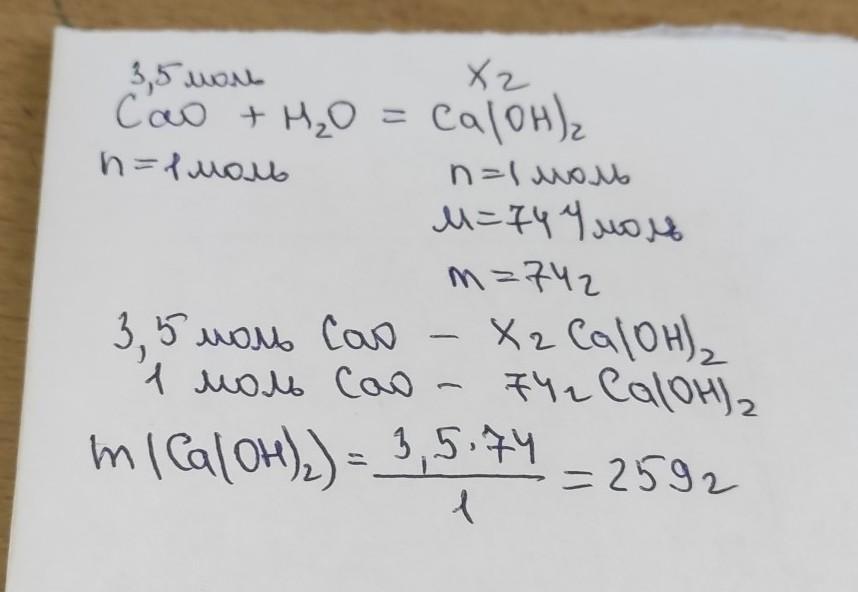 3,5 моль X г
CaO + H₂O = Ca(OH)₂
n = 1 моль n = 1 моль
M = 74 г/моль
m = 74 г
3,5 моль CaO – X г Ca(OH)₂
1 моль CaO – 74 г Ca(OH)₂
m(Ca(OH)₂) = 3,5 · 74 / 1 = 259 г